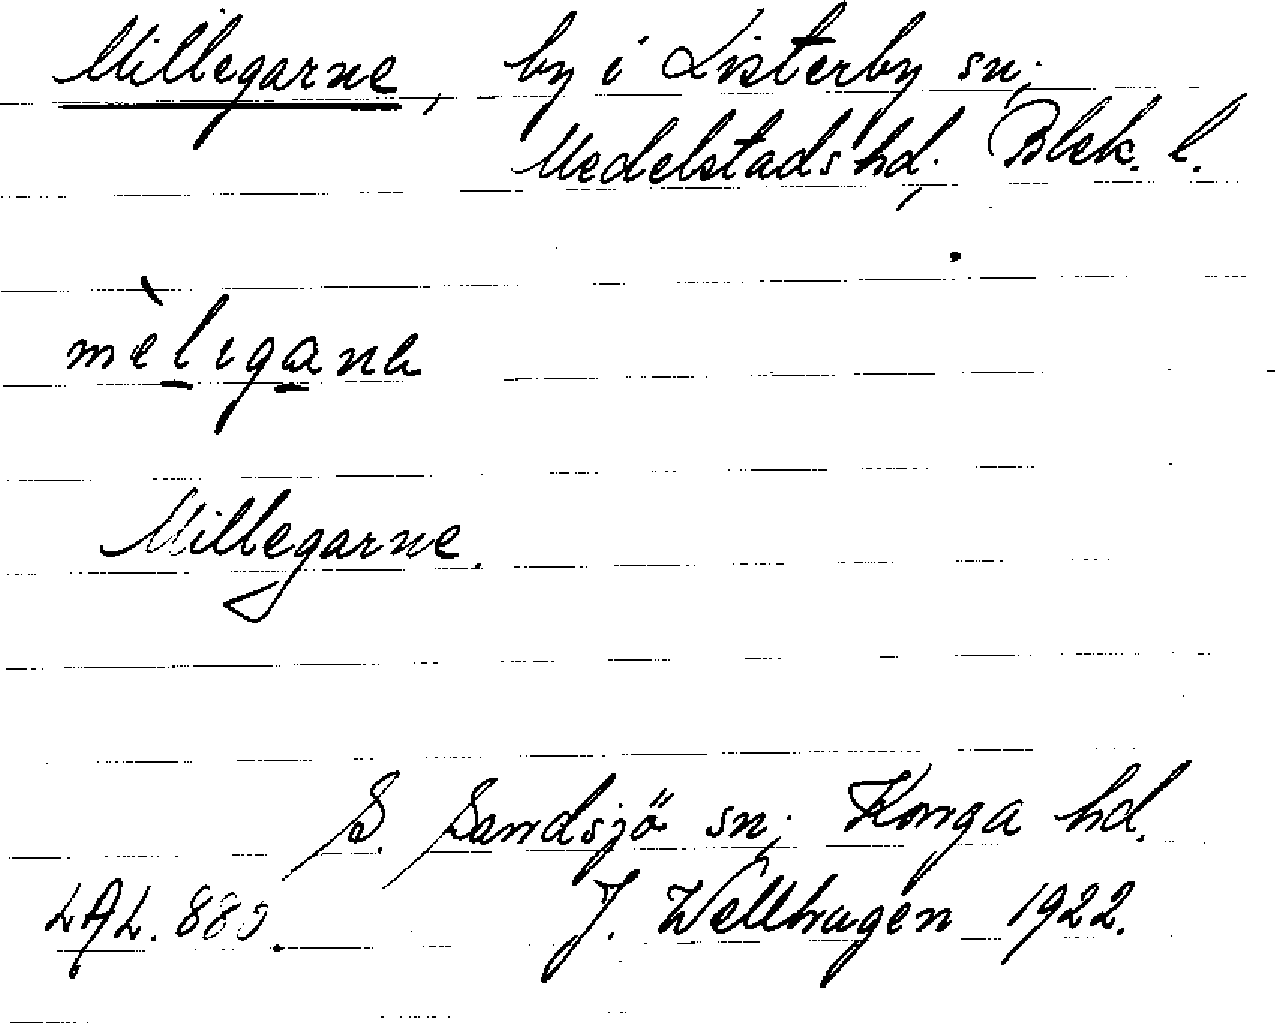 Millegarne, by i Listerby sn;
Medelstads hd, Blek. l.
mèlıgana
Millegarne.
S. Sandsjö sn; Konga hd.
LAL. 880. J. Wellhagen 1922.